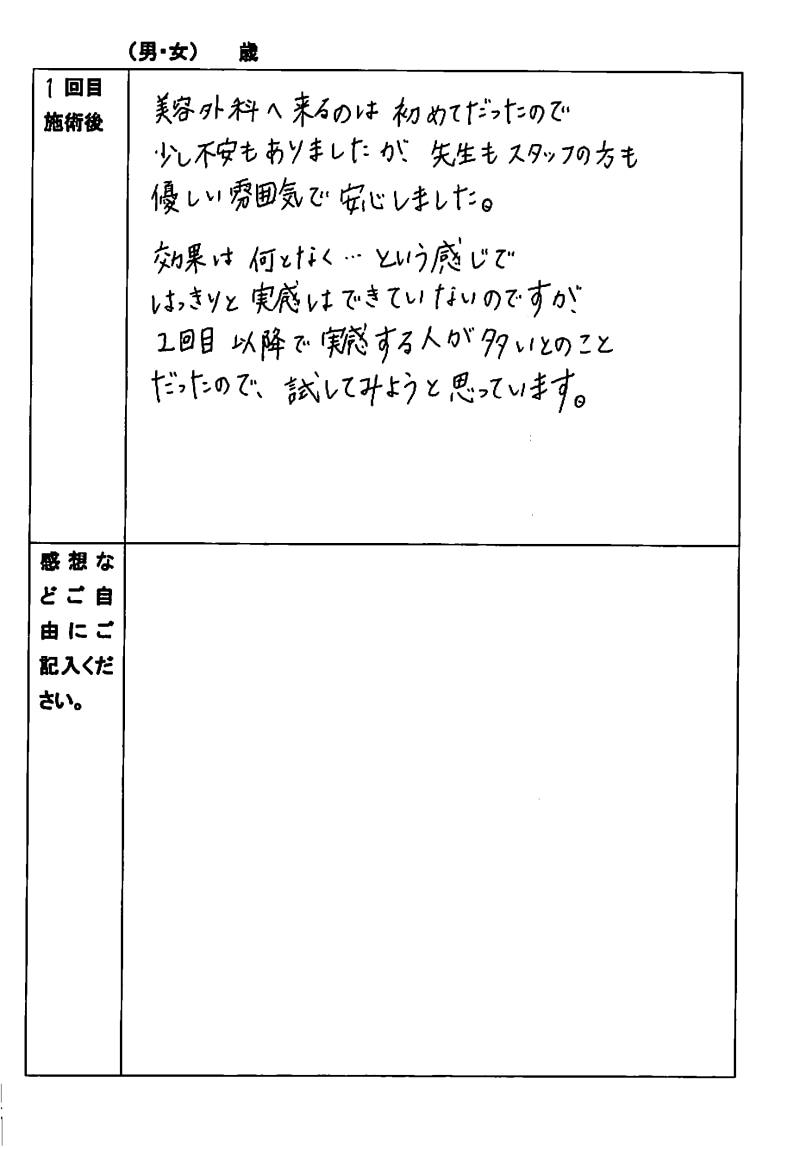 （男・女）　　歳
1 回目
施術後
美容外科へ来るのは 初めてだったので
少し不安もありましたが、先生もスタッフの方も
優しい雰囲気で 安心しました。
効果は 何となく…という感じで
はっきりと 実感はできていないのですが、
2回目 以降で 実感する人が多いとのこと
だったので、試してみようと思っています。
感想な
どご自
由にご
記入くだ
さい。